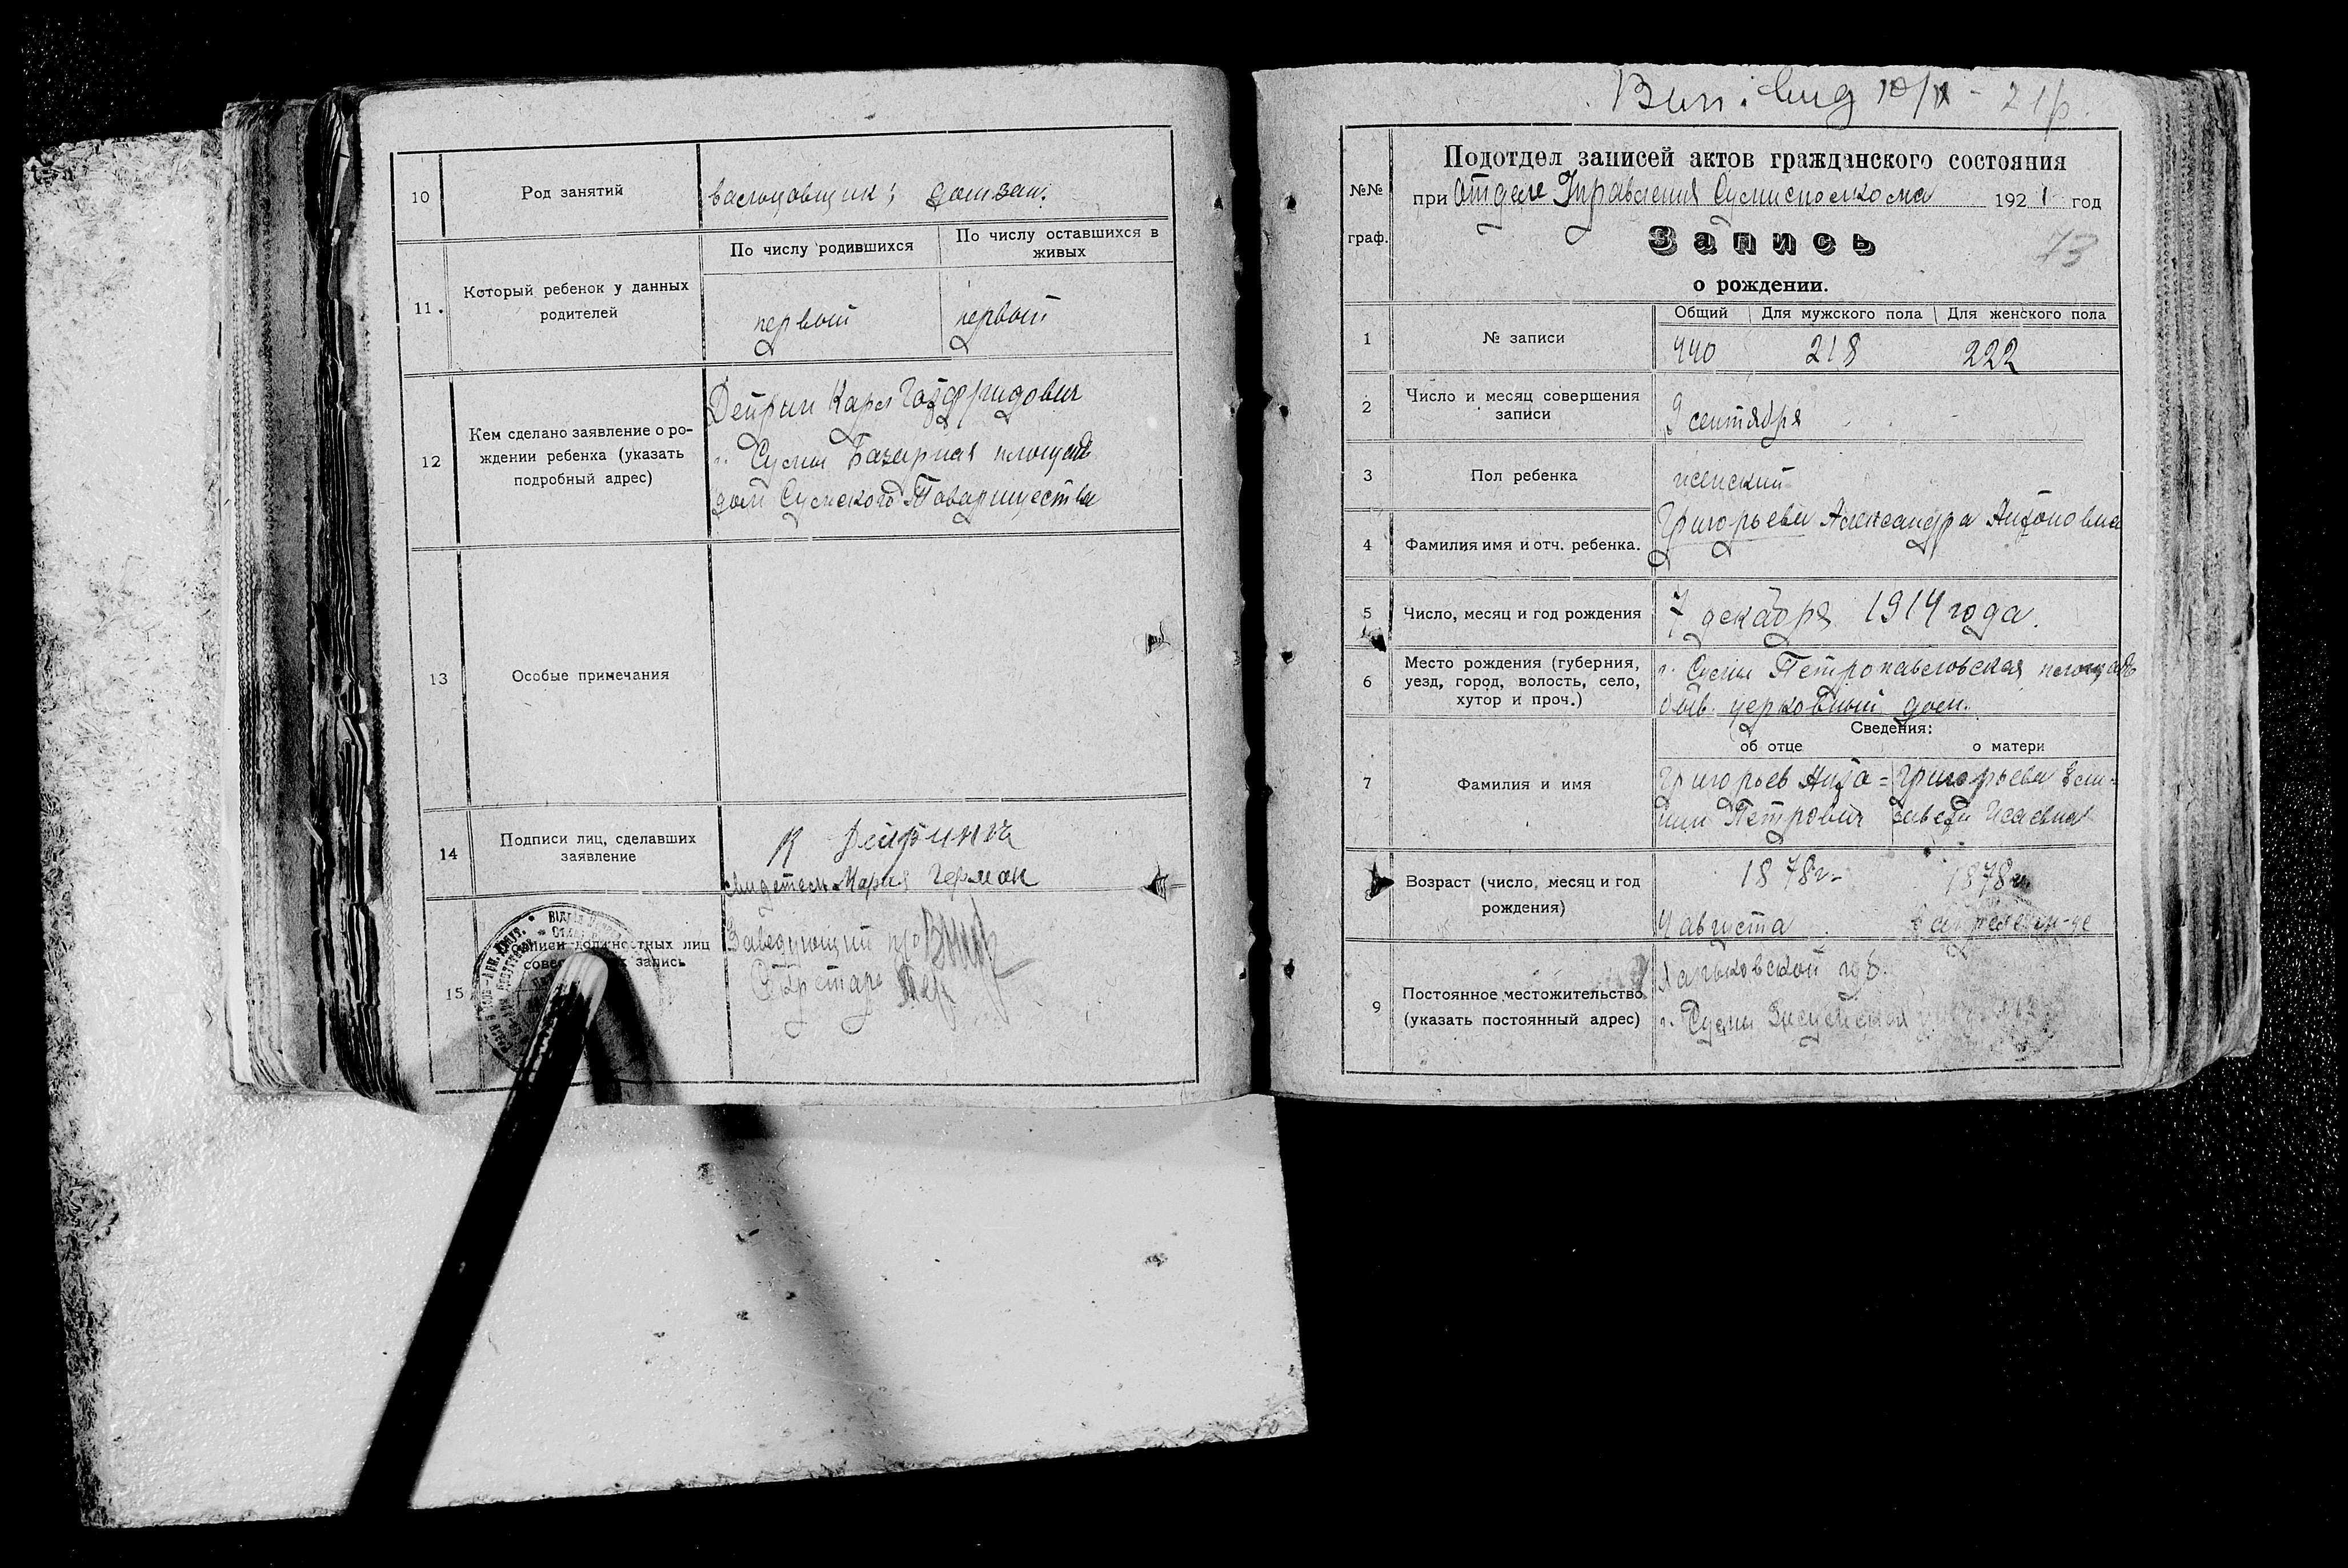 10
Род занятий
вальцовщик; дом зан.
11.
Который ребенок у данных
родителей
По числу родившихся
По числу оставшихся в
живых
первый
первый
12
Кем сделано заявление о ро-
ждении ребенка (указать
подробный адрес)
Дейрин Карл Готфридович
г. Сумы Базарная площадь
дом Сумского Товарищества
13
Особые примечания
14
Подписи лиц, сделавших
заявление
К
свидетель Мария Герман
15
должностных лиц
запись
Заведующий
Секретарь
10/ - 21р.
№№
граф.
Подотдел записей актов гражданского состояния
при Отделе Управления Сумисполкома 1921 год
Запись
73
о рождении.
1
№ записи
Общий
Для мужского пола
Для женского пола
440
218
222
2
Число и месяц совершения
записи
9 сентября
3
Пол ребенка
женский
4
Фамилия имя и отч. ребенка.
Григорьева Александра Антоновна
5
Число, месяц и год рождения
7 декабря 1914 года.
6
Место рождения (губерния,
уезд, город, волость, село,
хутор и проч.)
г. Сумы Петропавловская площадь
быв. церковный дом.
Сведения:
об отце
о матери
7
Фамилия и имя
Григорьев Анто=
нин Петрович
Григорьева Ели-
завета Исаевна
Возраст (число, месяц и год
рождения)
1878 г.
4 августа
1878 г.
9
Постоянное местожительство
(указать постоянный адрес)
Харьковской губ.
г. Сумы Засумская